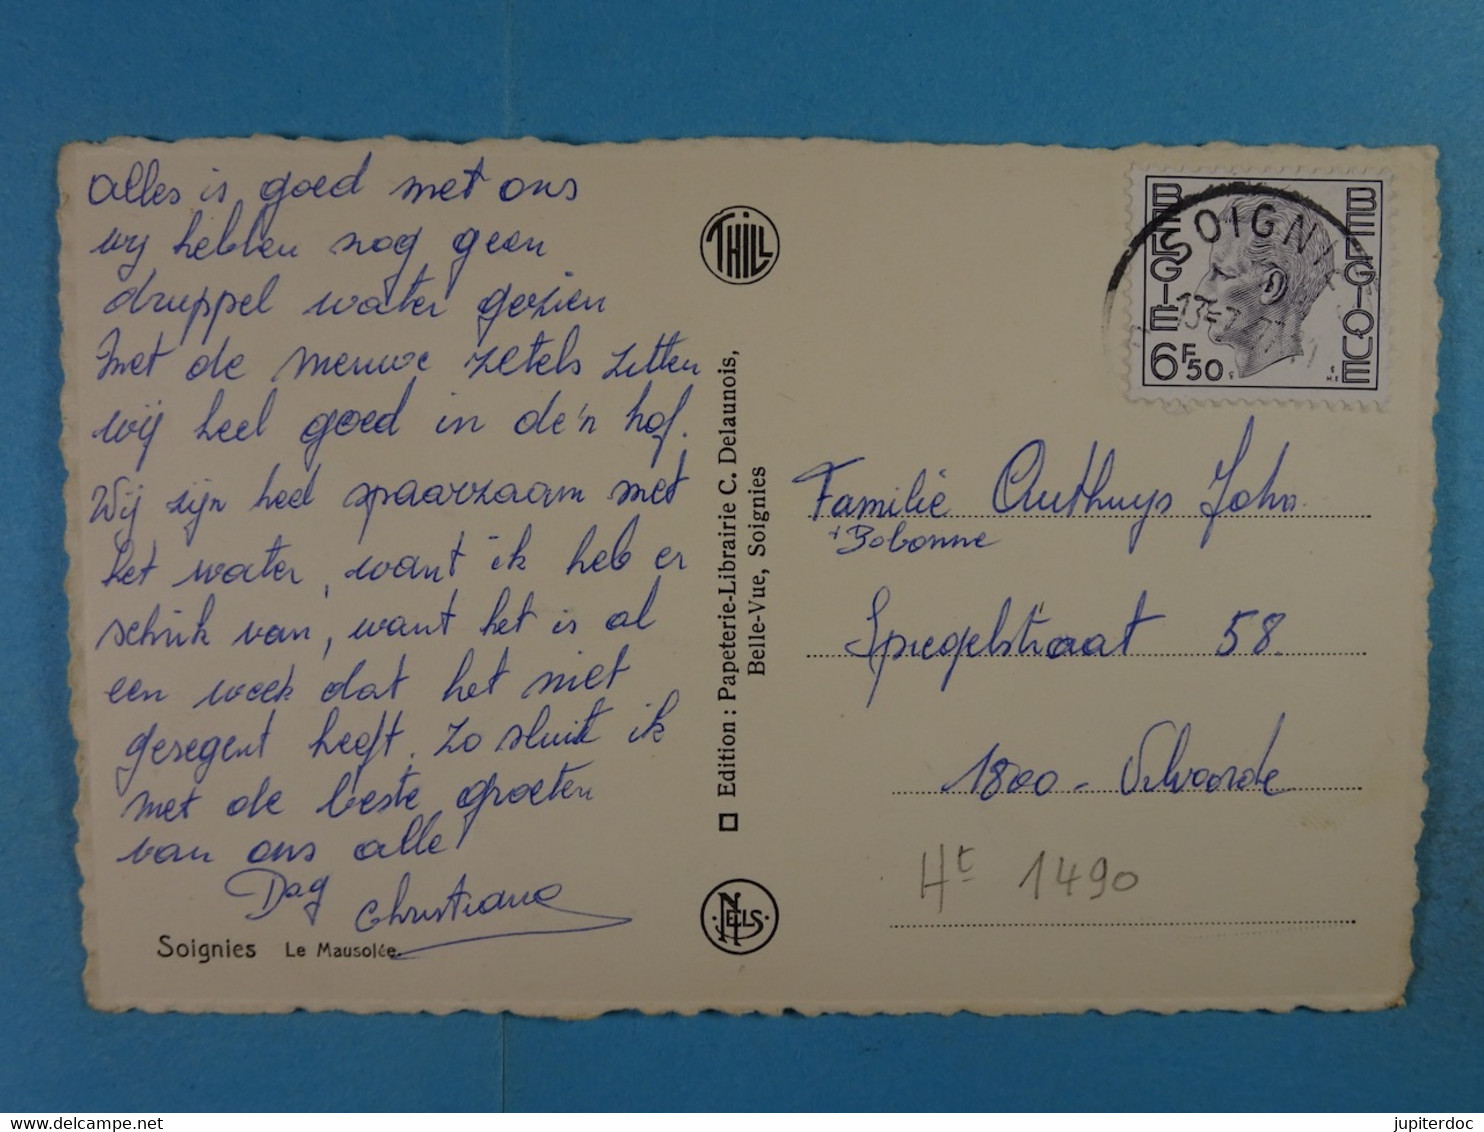 alles is goed met ons
wij hebben nog geen
druppel water gezien
Met de nieuwe zetels zitten
wij heel goed in de'n hof.
Wij zijn heel spaarzaam met
het water, want ik heb er
schrik van, want het is al
een week dat het niet
geregent heeft. Zo sluit ik
met de beste groeten
van ons alle
Dag
Christiane
Soignies Le Mausolée
THILL
Edition : Papeterie-Librairie C. Delaunois,
Belle-Vue, Soignies
NELS
BELGIE
BELGIQUE
6F50
SOIGNI
13-7
Familie Anthuys John
+ Bobonne
Spiegelstraat 58
1800 - Vilvoorde
Ht 1490
www.delcampe.net
jupiterdoc